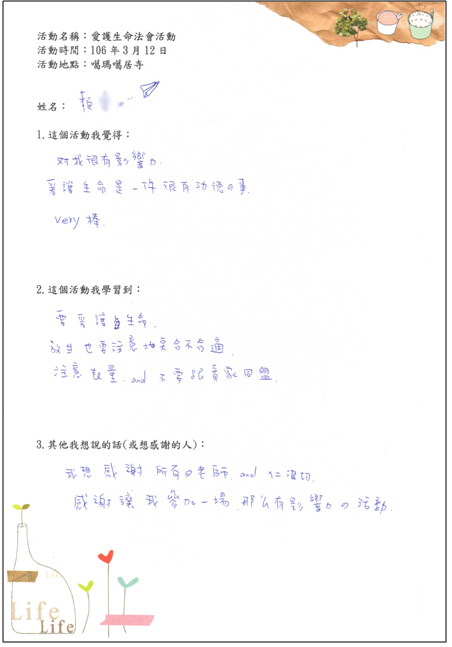 活動名稱：愛護生命法會活動
活動時間：106 年 3 月 12 日
活動地點：噶瑪噶居寺
姓名： 賴
1.這個活動我覺得：
對我很有影響力.
愛護生命是一件很有功德の事.
very 棒.
2.這個活動我學習到：
要愛護生命.
放生也要注意地點合不合適.
注意數量. and 不要跟賣家回盤.
3.其他我想說的話(或想感謝的人)：
我想感謝所有の老師. and 仁波切.
感謝讓我參加一場.那么有影響力の活動.
Life
Life